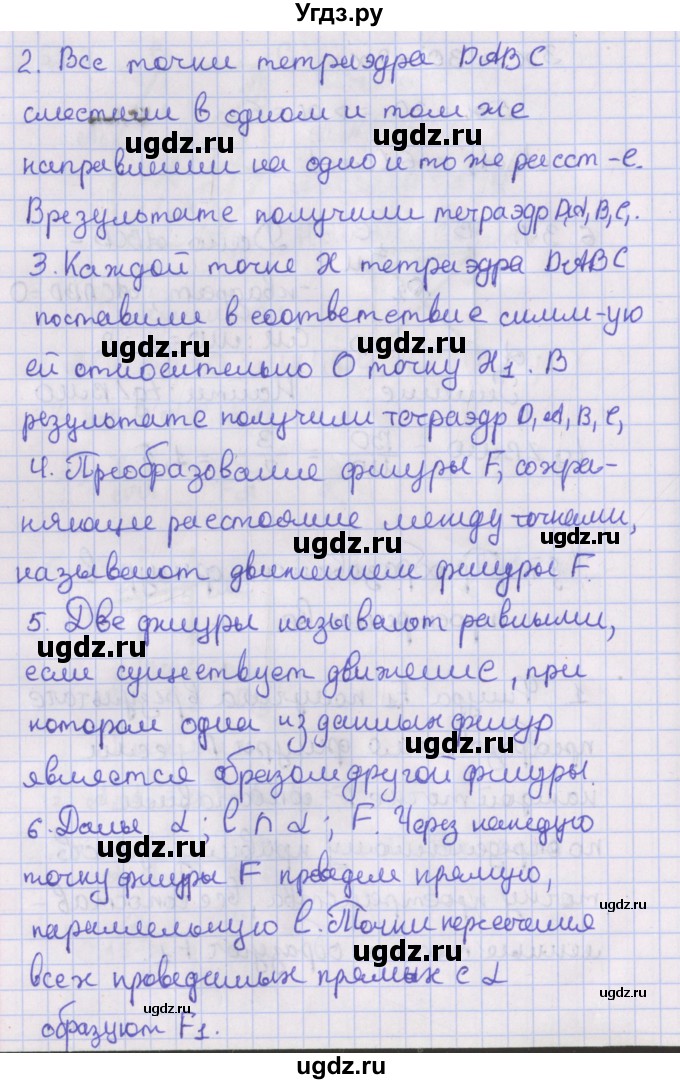 Угдз.ру
2. Все точки тетраэдра DABC
сместили в одном и том же
ugdz.ru ugdz.ru
направлении на одно и то же расст-е.
В результате получили тетраэдр D₁A₁B₁C₁.
ugdz.ru
3. Каждой точке X тетраэдра DABC
поставили в соответствие симм-ую
ugdz.ru ugdz.ru
ей относительно O точку X₁. В
результате получили тетраэдр D₁A₁B₁C₁
ugdz.ru
4. Преобразование фигуры F, сохра-
няющее расстояние между точками,
ugdz.ru
называют движением фигуры F.
5. Две фигуры называют равными,
ugdz.ru
если существует движение, при
котором одна из данных фигур
ugdz.ru
является образом другой фигуры.
6. Даны α; l ∩ α; F. Через каждую
ugdz.ru
точку фигуры F проведем прямую,
ugdz.ru
параллельную l. Точки пересечения
ugdz.ru
всех проведенных прямых с α
ugdz.ru
образуют F₁.
ugdz.ru
ugdz.ru